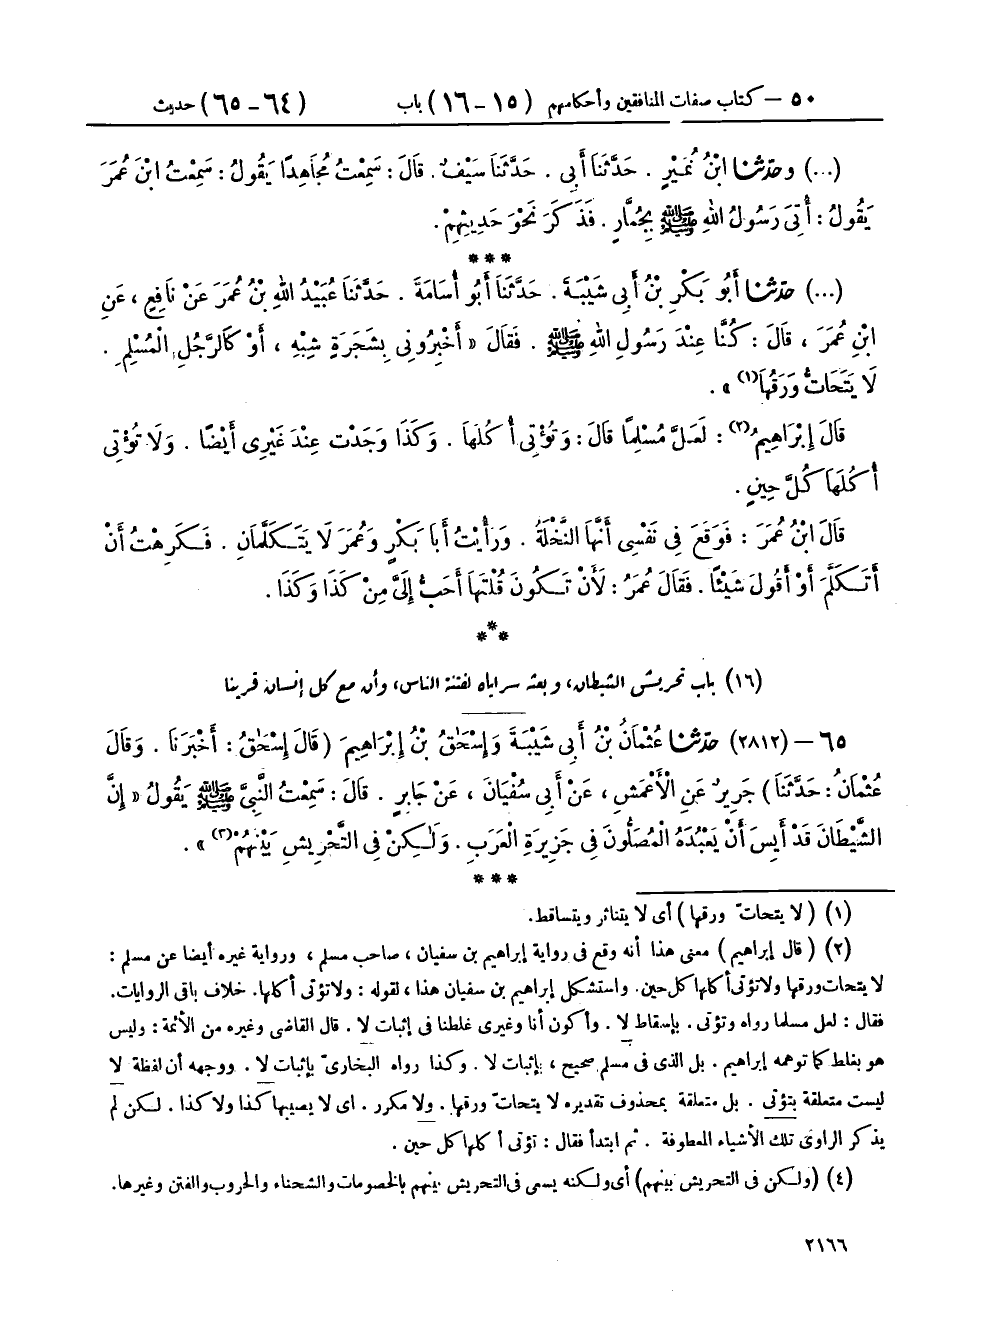 ٥٠ – كتاب صفات المنافقين وأحكامهم (١٥ – ١٦) باب (٦٤ – ٦٥) حديث
(...) وحَدَّثَنَا ابْنُ نُمَيْرٍ . حَدَّثَنَا أَبِي . حَدَّثَنَا سَيْفٌ . قَالَ : سَمِعْتُ مُجَاهِدًا يَقُولُ : سَمِعْتُ ابْنَ عُمَرَ
يَقُولُ : أُتِيَ رَسُولُ اللهِ ﷺ بِجُمَّارٍ . فَذَكَرَ نَحْوَ حَدِيثِهِمْ .
***
(...) حَدَّثَنَا أَبُو بَكْرِ بْنُ أَبِي شَيْبَةَ . حَدَّثَنَا أَبُو أُسَامَةَ . حَدَّثَنَا عُبَيْدُ اللهِ بْنُ عُمَرَ عَنْ نَافِعٍ ، عَنِ
ابْنِ عُمَرَ ، قَالَ : كُنَّا عِنْدَ رَسُولِ اللهِ ﷺ . فَقَالَ « أَخْبِرُونِي بِشَجَرَةٍ شِبْهِ ، أَوْ كَالرَّجُلِ الْمُسْلِمِ .
لَا يَتَحَاتُّ وَرَقُهَا(١) » .
قَالَ إِبْرَاهِيمُ(٢) : لَعَلَّ مُسْلِمًا قَالَ : وَتُؤْتِي أُكُلَهَا . وَكَذَا وَجَدْتُ عِنْدَ غَيْرِي أَيْضًا . وَلَا تُؤْتِي
أُكُلَهَا كُلَّ حِينٍ .
قَالَ ابْنُ عُمَرَ : فَوَقَعَ فِي نَفْسِي أَنَّهَا النَّخْلَةُ . وَرَأَيْتُ أَبَا بَكْرٍ وَعُمَرَ لَا يَتَكَلَّمَانِ . فَكَرِهْتُ أَنْ
أَتَكَلَّمَ أَوْ أَقُولَ شَيْئًا . فَقَالَ عُمَرُ : لَأَنْ تَكُونَ قُلْتَهَا أَحَبُّ إِلَيَّ مِنْ كَذَا وَكَذَا .
***
(١٦) باب تحريش الشيطان، وبعثه سراياه لفتنة الناس، وأن مع كل إنسان قرينا
٦٥ – (٢٨١٢) حَدَّثَنَا عُثْمَانُ بْنُ أَبِي شَيْبَةَ وَإِسْحَٰقُ بْنُ إِبْرَاهِيمَ (قَالَ إِسْحَٰقُ : أَخْبَرَنَا . وَقَالَ
عُثْمَانُ : حَدَّثَنَا) جَرِيرٌ عَنِ الْأَعْمَشِ ، عَنْ أَبِي سُفْيَانَ ، عَنْ جَابِرٍ . قَالَ : سَمِعْتُ النَّبِيَّ ﷺ يَقُولُ « إِنَّ
الشَّيْطَانَ قَدْ أَيِسَ أَنْ يَعْبُدَهُ الْمُصَلُّونَ فِي جَزِيرَةِ الْعَرَبِ . وَلَٰكِنْ فِي التَّحْرِيشِ بَيْنَهُمْ(٣) » .
***
(١) (لا يتحاتّ ورقها) أى لا يتناثر ويتساقط.
(٢) (قال إبراهيم) معنى هذا أنه وقع فى رواية إبراهيم بن سفيان ، صاحب مسلم ، ورواية غيره أيضا عن مسلم :
لا يتحات ورقها ولا تؤتى أكلها كل حين. واستشكل إبراهيم بن سفيان هذا ، لقوله : ولا تؤتى أكلها. خلاف باقى الروايات.
فقال : لعل مسلما رواه وتؤتى . بإسقاط لا . وأكون أنا وغيرى غلطنا فى إثبات لا . قال القاضى وغيره من الأئمة : وليس
هو بغلط كما توهمه إبراهيم . بل الذى فى مسلم صحيح ، بإثبات لا . وكذا رواه البخارىّ بإثبات لا . ووجهه أن لفظة لا
ليست متعلقة بتؤتى . بل متعلقة بمحذوف تقديره لا يتحاتّ ورقها . ولا مكرر . اى لا يصيبها كذا ولا كذا . لكن لم
يذكر الراوى تلك الأشياء المعطوفة . ثم ابتدأ فقال : تؤتى أكلها كل حين .
(٤) (ولكن فى التحريش بينهم) أى ولكنه يسعى فى التحريش بينهم بالخصومات والشحناء والحروب والفتن وغيرها.
٢١٦٦